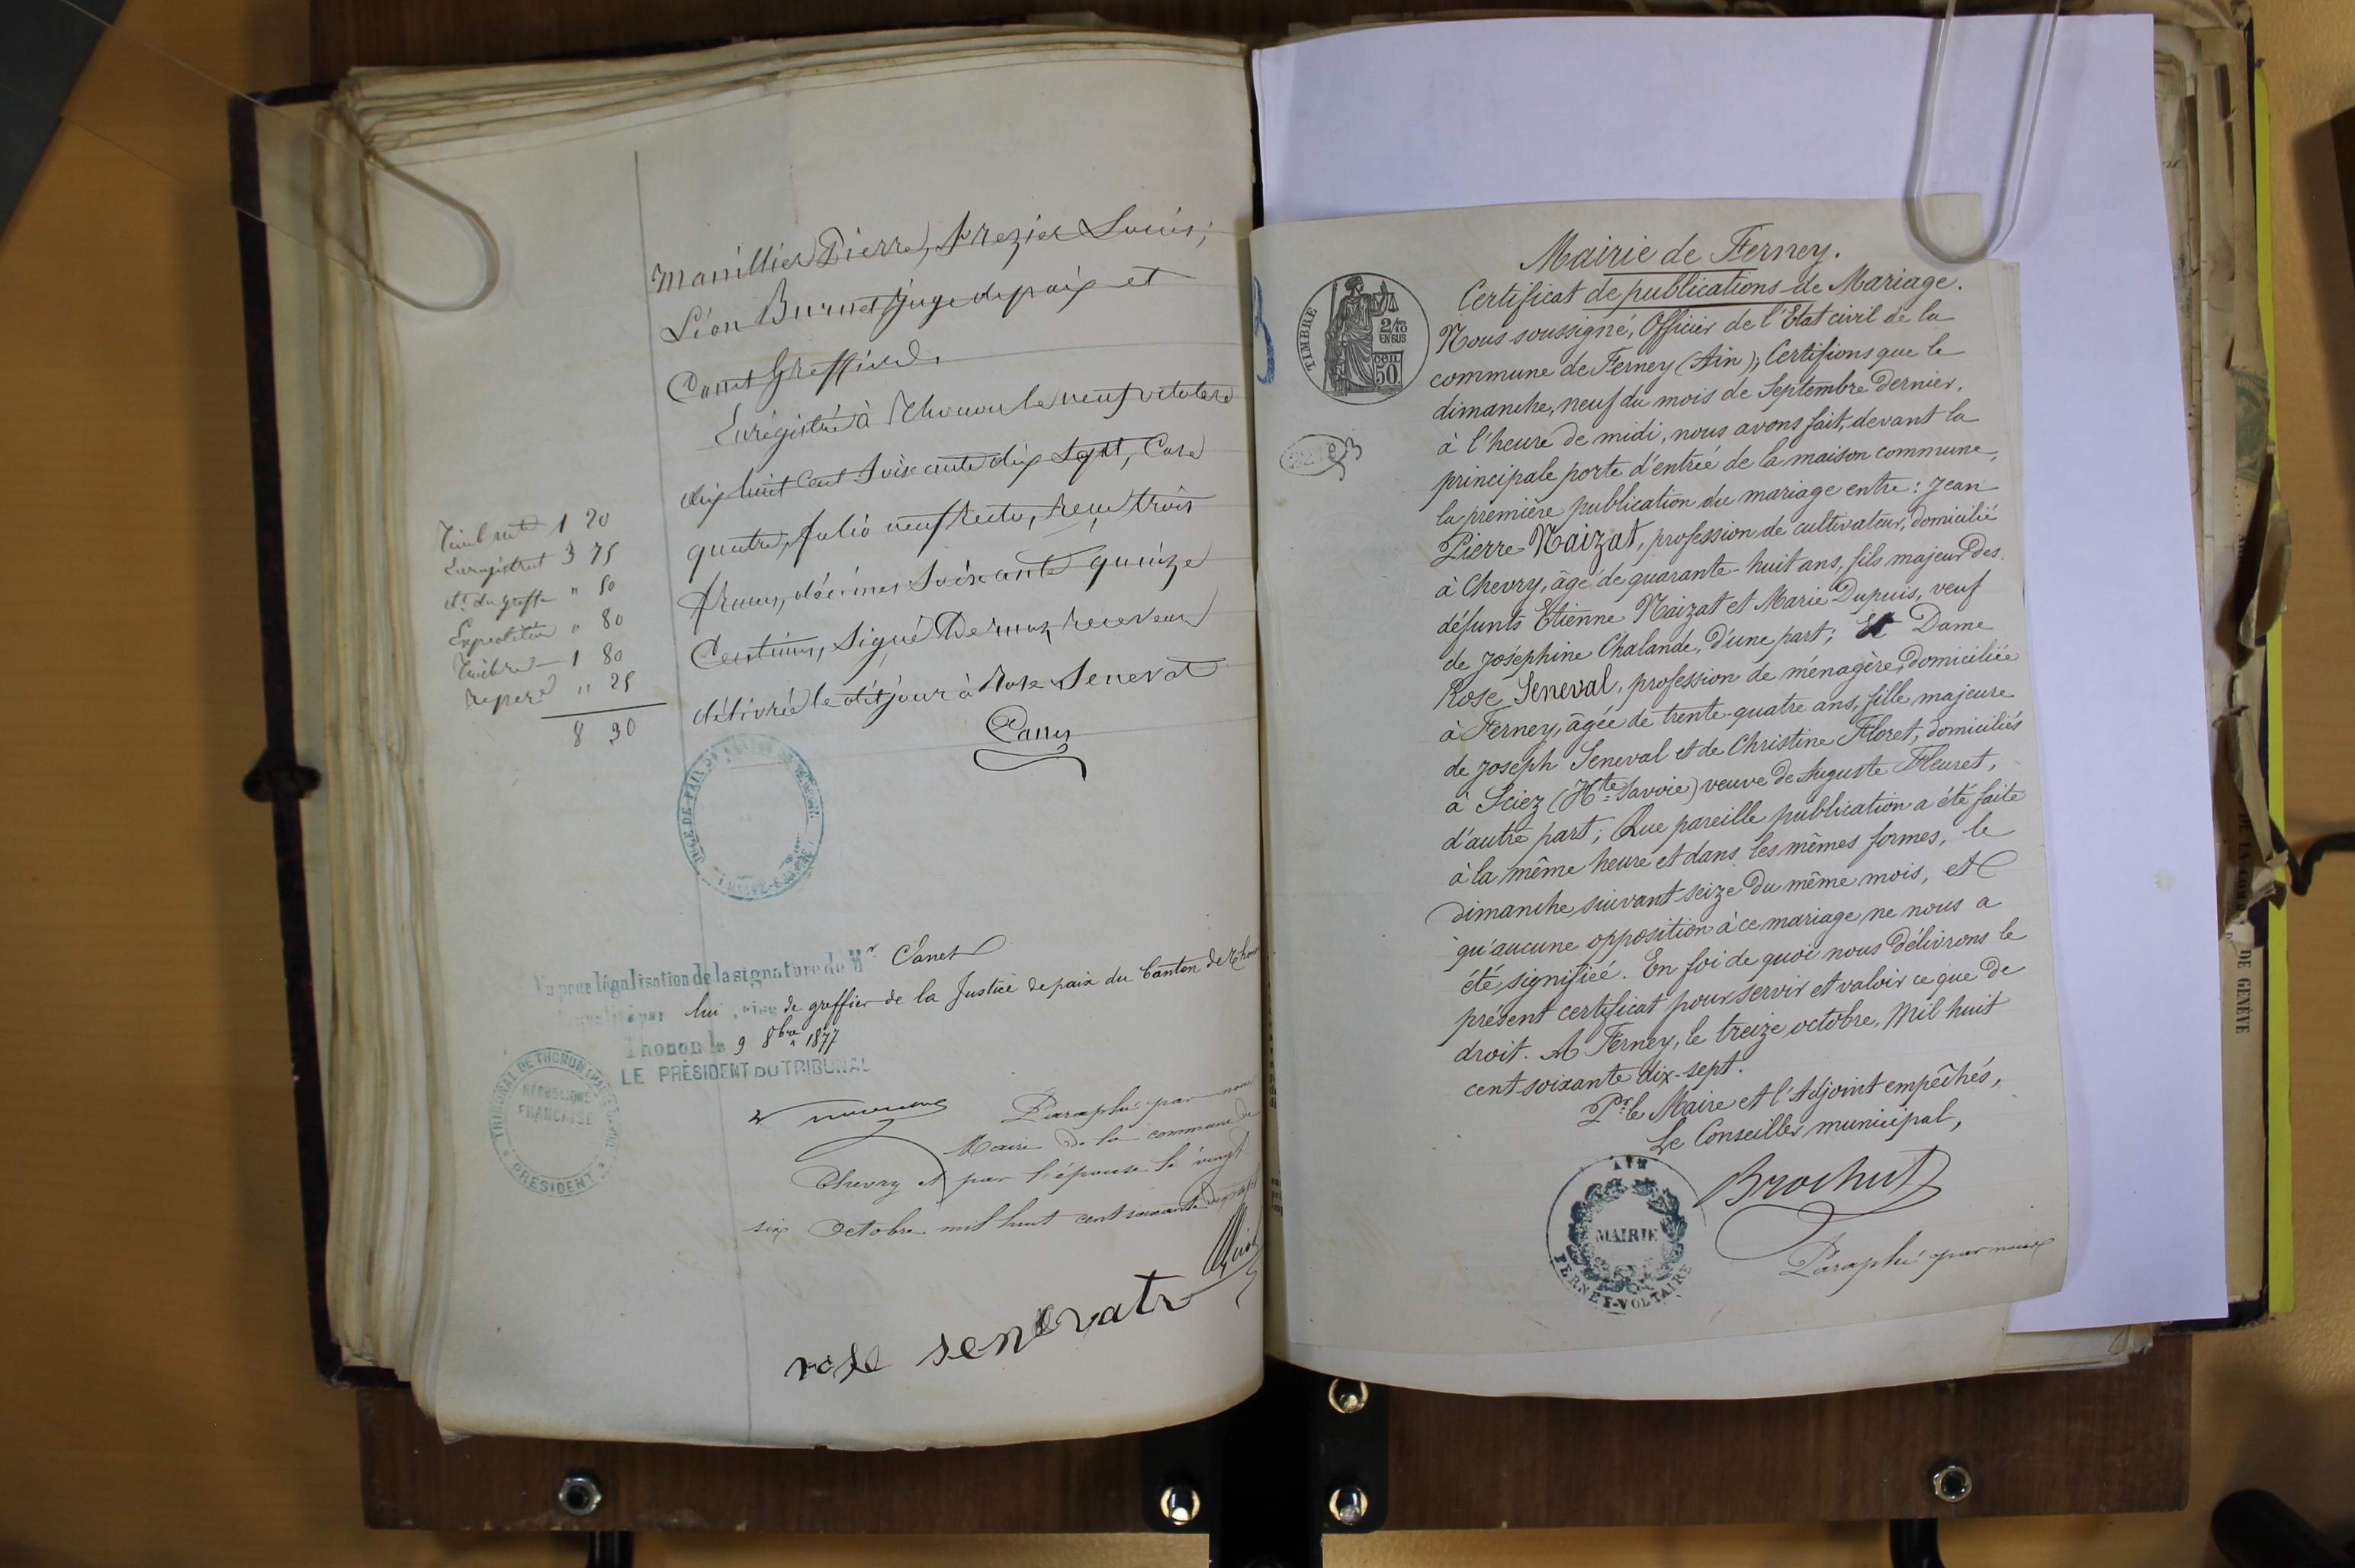 Pierre, Frezier Louis,
Léon Burnet Juge de paix et
Canet Greffier.
Enregistré à Thonon le neuf octobre
dix huit cent soixante dix sept, Case
quatre, folio neuf recto, reçu trois
francs, décimes soixante quinze
Centimes, Signé receveur
délivrée le dit jour à Rose Seneval
Canet
1 20
Enregistremt 3 75
dt. du greffe " 50
Expedition " 80
Timbre 1 80
" 25
8 30
JUGE DE PAIX
Vu pour légalisation de la signature de Mr. Canet
lui de greffier de la Justice de paix du Canton de Thonon
Thonon le 9 8bre 1877
LE PRÉSIDENT DU TRIBUNAL
TRIBUNAL DE THONON
RÉPUBLIQUE
FRANÇAISE
PRESIDENT
Paraphé par nous
Maire de la commune de
Chevry et par l'épouse le vingt
six Octobre mil huit cent soixante dix sept
rose senevat
Mairie de Ferney.
Certificat de publications de Mariage.
TIMBRE
2/10
EN SUS
cen
50
Nous soussigné, Officier de l'Etat civil de la
commune de Ferney (Ain); Certifions que le
dimanche, neuf du mois de Septembre dernier,
à l'heure de midi, nous avons fait, devant la
principale porte d'entrée de la maison commune,
la première publication du mariage entre: Jean
Pierre Naizat, profession de cultivateur, domicilié
à Chevry, âgé de quarante-huit ans, fils majeur des
défunts Etienne Naizat et Marie Dupuis, veuf
de Joséphine Chalande, d'une part; Et Dame
Rose Seneval, profession de ménagère, domiciliée
à Ferney, âgée de trente-quatre ans, fille majeure
de Joseph Seneval et de Christine Floret, domiciliés
à Sciez (Hte Savoie) veuve de Auguste Fleuret,
d'autre part; Que pareille publication a été faite
à la même heure et dans les mêmes formes, le
dimanche suivant seize du même mois, et
qu'aucune opposition à ce mariage ne nous a
été signifiée. En foi de quoi nous délivrons le
présent certificat pour servir et valoir ce que de
droit. A Ferney, le treize octobre, Mil huit
cent soixante dix-sept.
Pr. le Maire et l'Adjoint empêchés,
Le Conseiller municipal,
Brochut
AIN
MAIRIE
FERNEY-VOLTAIRE
Paraphé par nous
DE GENÈVE